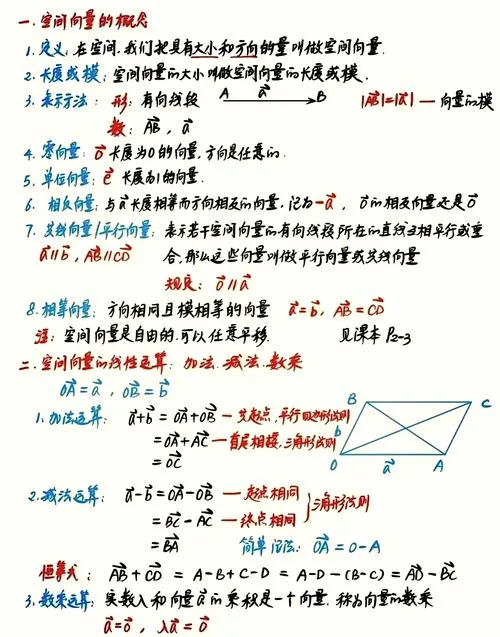 一.空间向量的概念
1.定义:在空间,我们把具有大小和方向的量叫做空间向量.
2.长度或模:空间向量的大小叫做空间向量的长度或模.
3.表示方法: 形:有向线段 A a⃗ B |AB⃗|=|a⃗| — 向量的模
数:AB⃗, a⃗
4.零向量:0⃗ 长度为0的向量,方向是任意的.
5.单位向量:e⃗ 长度为1的向量.
6.相反向量:与a⃗长度相等而方向相反的向量,记为-a⃗, 0⃗的相反向量还是0⃗
7.共线向量/平行向量:表示若干空间向量的有向线段所在的直线互相平行或重
a⃗∥b⃗, AB⃗∥CD⃗ 合,那么这些向量叫做平行向量或共线向量
规定:0⃗∥a⃗
8.相等向量:方向相同且模相等的向量 a⃗=b⃗, AB⃗=CD⃗
注:空间向量是自由的,可以任意平移. 见课本P2-3
二.空间向量的线性运算:加法.减法.数乘
OA⃗=a⃗, OB⃗=b⃗
1.加法运算: a⃗+b⃗=OA⃗+OB⃗ — 共起点,平行四边形法则
=OA⃗+AC⃗ — 首尾相接,三角形法则
=OC⃗
B C
b⃗
O a⃗ A
2.减法运算: a⃗-b⃗=OA⃗-OB⃗ — 起点相同
=BC⃗-AC⃗ — 终点相同 } 三角形法则
=BA⃗ 简单记法:OA⃗=O-A
恒等式: AB⃗+CD⃗=A-B+C-D=A-D-(B-C)=AD⃗-BC⃗
3.数乘运算:实数λ和向量a⃗的乘积是一个向量,称为向量的数乘
a⃗=0⃗, λa⃗=0⃗